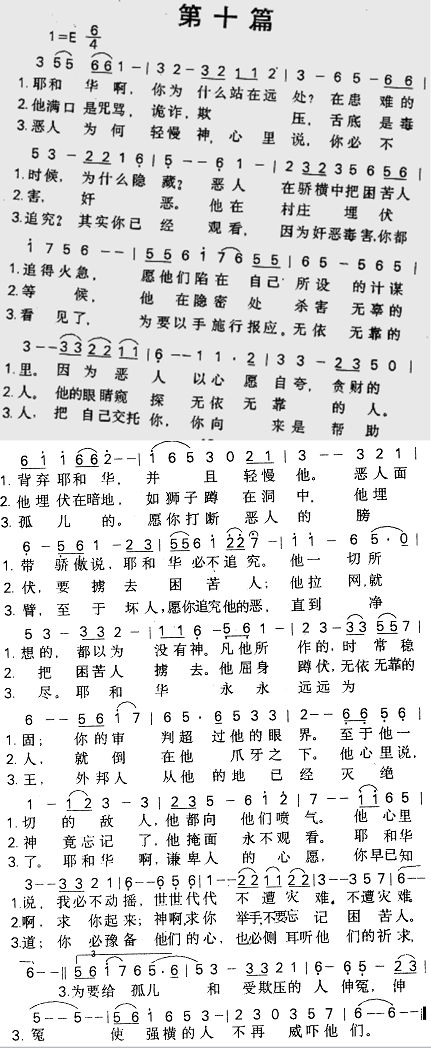 第十篇
1=E 6/4
3 5 5 6 6 1 - | 3 2 - 3 2 1 1 2 | 3 - 6 5 - 6 6 |
1.耶和 华啊，你为 什么站在远 处？在患 难的
2.他满口是咒骂，诡诈，欺 压，舌底 是毒
3.恶人 为何 轻慢神，心里说，你必不
5 3 - 2 2 1 6 | 5 - - 6 1 - | 2 3 2 3 5 6 5 6 |
1.时候，为什么隐藏？ 恶人 在骄横中把困苦人
2.害，奸 恶。他在 村庄 埋伏
3.追究？其实你已经 观看，因为奸恶毒害，你都
1 7 5 6 - - | 5 5 6 1 7 6 5 5 | 6 5 - 5 6 5 |
1.追得火急， 愿他们陷在 自己 所设 的计谋
2.等 候， 他 在隐密处 杀害 无辜的
3.看 见了， 为要以手施行报应。无依 无靠的
3 - - 3 3 2 2 1 1 | 6 - - 1 1 · 2 | 3 3 - 2 3 5 0 |
1.里。因为恶 人 以心愿自夸，贪财的
2.人。他的眼睛窥 探 无依无靠 的 人。
3.人，把 自己交托 你，你向 来是 帮助
6 1 1 6 6 2 - - | 1 6 5 3 0 2 1 | 3 - - 3 2 1 |
1.背弃耶和 华， 并 且 轻慢 他。 恶人面
2.他埋伏在暗地，如狮子蹲 在洞 中，他埋
3.孤 儿的。愿你打断 恶人的 膀
6 - 5 6 1 - 2 3 | 5 5 6 1 2 2 7 - | 1 1 - 6 5 · 0 |
1.带 骄傲说，耶和 华必不追究。他一 切所
2.伏，要掳去 困苦 人；他拉 网，就
3.臂，至于坏人，愿你追究他的恶，直到 净
5 3 - 3 3 2 - | 1 1 6 - 5 6 1 | 2 3 - 3 3 5 5 7 |
1.想的，都以为 没有神。凡他所 作的，时常稳
2. 把 困苦人 掳去。他屈身 蹲伏，无依无靠的
3. 尽。耶和 华 永 永 远远为
6 - - 5 6 1 7 | 6 5 · 6 5 3 3 | 2 - - 6 6 5 6 |
1.固； 你的审 判超 过他的眼 界。至于他一
2.人， 就 倒 在他 爪牙之 下。他心里说，
3.王，外邦人 从他 的地 已经 灭绝
1 - 1 2 3 - 3 | 2 3 5 - 6 1 2 | 7 - - 1 1 6 5 |
1.切 的 敌 人，他都向 他们喷 气。他心里
2.神 竟忘记 了，他掩面 永不观 看。耶和华
3.了。耶和华 啊，谦卑人 的心愿， 你早已知
3 - - 3 3 2 1 | 6 - - 6 5 6 | 1 - - 2 2 1 1 2 2 | 3 - 3 5 7 |
1.说，我必不动摇，世世代代 不遭灾 难。不遭灾难
2.啊，求 你起来；神啊求你 举手不要忘 记困苦人。
3.道；你必豫备 他们的心，也必侧耳听他 们的祈求，
6 - - || 5 6 1 7 6 5 · 6 | 5 3 - 3 3 2 1 | 6 - 6 5 - 2 3 |
3.为要给 孤儿 和 受欺压的 人伸冤，伸
5 - - 5 - - | 5 6 1 6 5 3 - | 2 3 0 3 5 7 | 6 - - 6 - - ||
3.冤 使 强横的人 不再 威吓他 们。